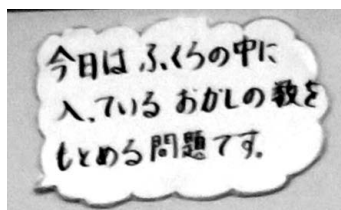 今日はふくろの中に
入っているおかしの数を
もとめる問題です。